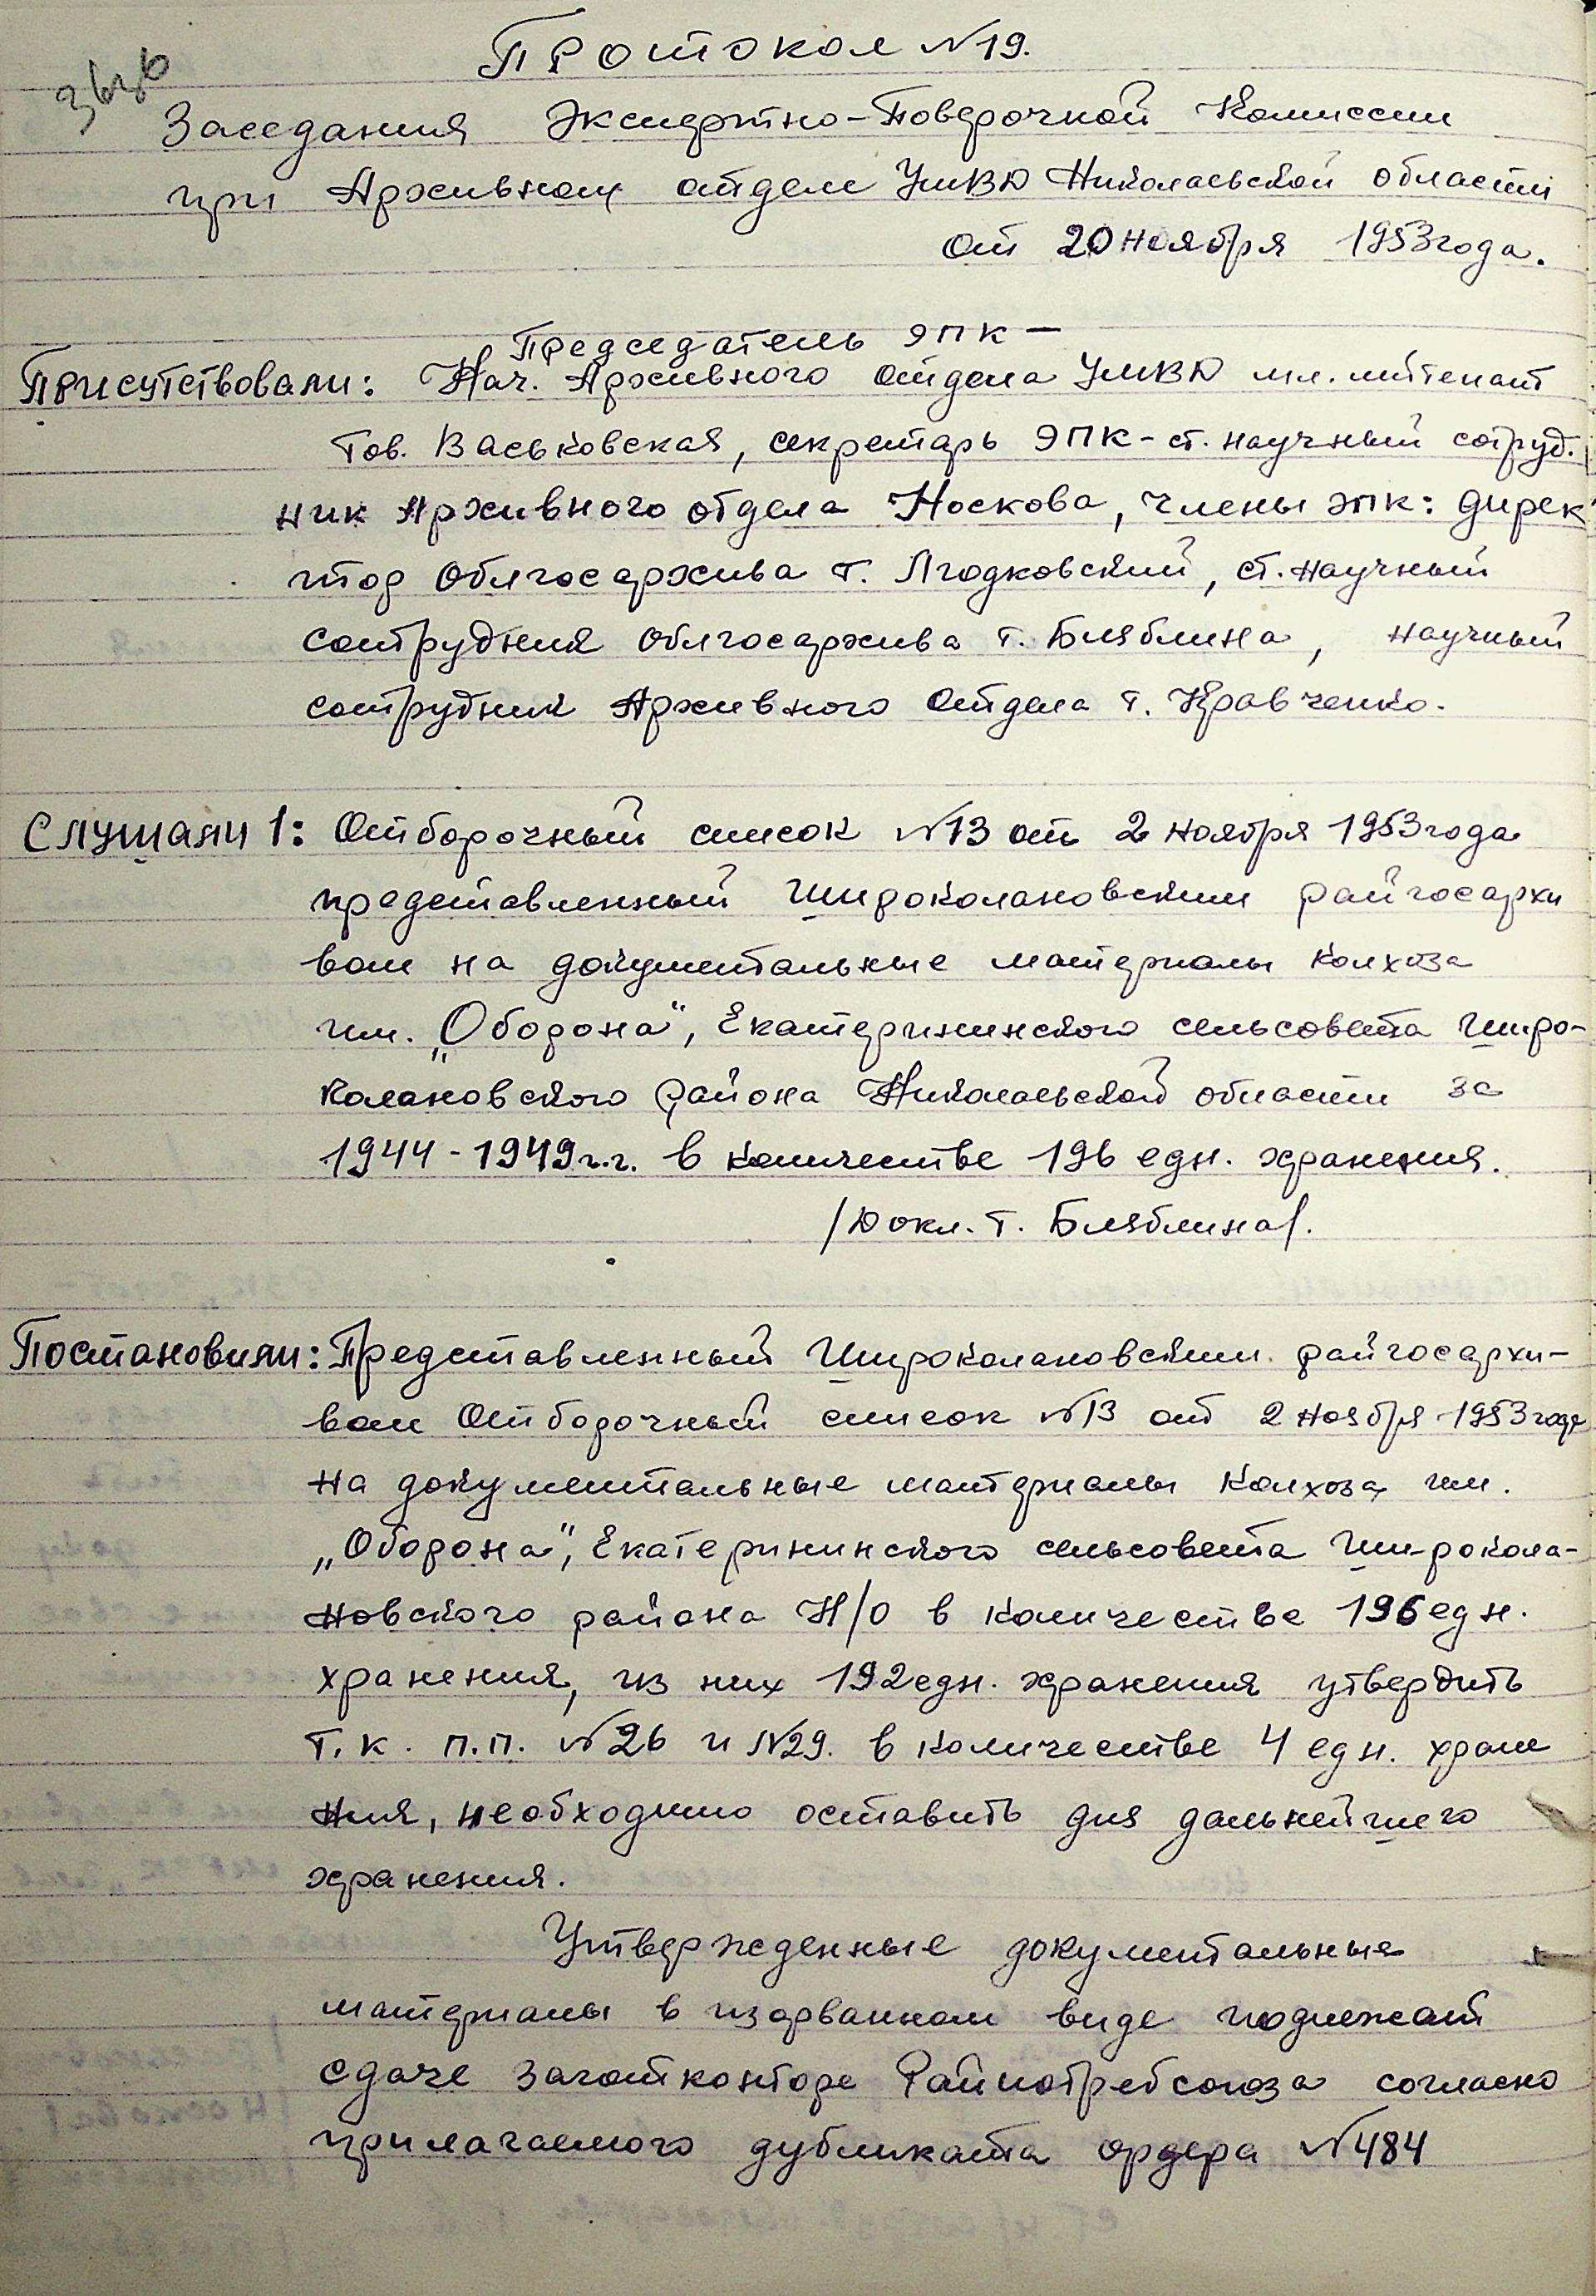 Протокол №19.
Заседания Экспертно-Поверочной Комиссии
при Архивном отделе УМВД Николаевской области
от 20 ноября 1953 года.
Председатель ЭПК —
Присутствовали: Нач. Архивного отдела УМВД мл. лийтенант
тов. Васьковская, секретарь ЭПК - ст. научный сотруд.
ник Архивного отдела Носкова, члены ЭПК: дирек
тор Облгосархива т. Лгодковский, ст. научный
сотрудник Облгосархива т. Бляблина, научный
сотрудник Архивного отдела т. Кравченко.
Слушали 1: Отборочный список №13 от 2 ноября 1953 года
представленный Широколановским райгосархи
вом на документальные материалы колхоза
им. „Оборона", Екатерининского сельсовета Широ-
колановского района Николаевской области за
1944 - 1949 г.г. в количестве 196 едн. хранения.
/Докл. т. Бляблина/.
Постановили: Представленный Широколановским райгосархи-
вом Отборочный список №13 от 2 ноября 1953 года
на документальные материалы колхоза им.
„Оборона", Екатерининского сельсовета Широкола-
новского района Н/О в количестве 196 едн.
хранения, из них 192 едн. хранения утвердить
т.к. п.п. №26 и №29. в количестве 4 едн. хране
ния, необходимо оставить для дальнейшего
хранения.
Утвержденные документальные
материалы в изорванном виде подлежат
сдаче заготконторе Райпотребсоюза согласно
прилагаемого дубликата ордера №484